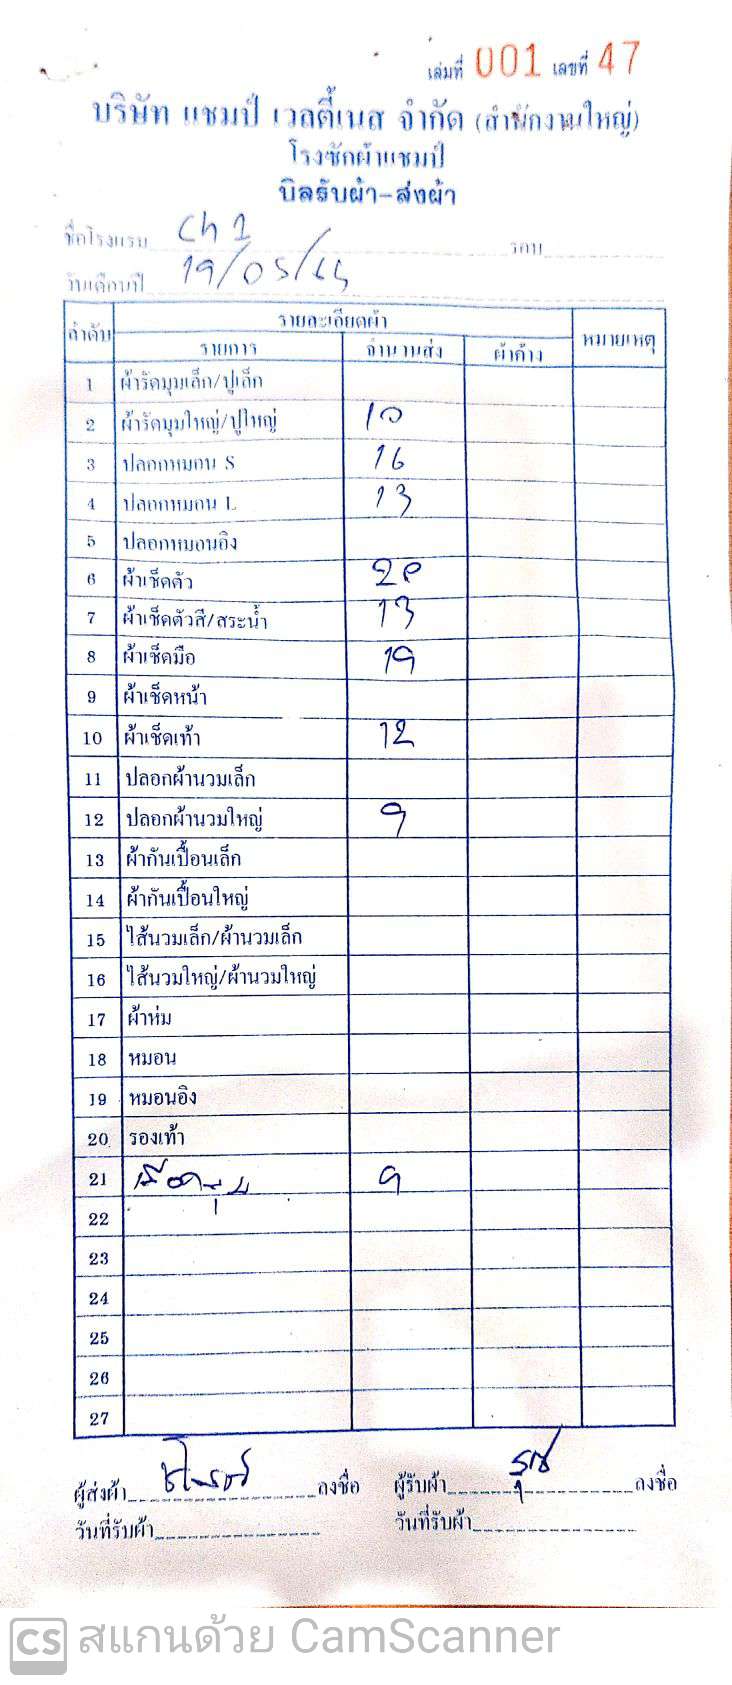 เล่มที่ 001 เลขที่ 47
บริษัท แชมป์ เวลตี้เนส จำกัด (สำนักงานใหญ่)
โรงซักผ้าแชมป์
บิลรับผ้า-ส่งผ้า
ชื่อโรงแรม Ch 1 รอบ
วันเดือนปี 19/05/65
ลำดับ รายละเอียดผ้า หมายเหตุ
รายการ จำนวนส่ง ผ้าค้าง
1 ผ้ารัดมุมเล็ก/ปูเล็ก
2 ผ้ารัดมุมใหญ่/ปูใหญ่ 10
3 ปลอกหมอน S 16
4 ปลอกหมอน L 13
5 ปลอกหมอนอิง
6 ผ้าเช็ดตัว
7 ผ้าเช็ดตัวสี/สระน้ำ 13
8 ผ้าเช็ดมือ 19
9 ผ้าเช็ดหน้า
10 ผ้าเช็ดเท้า 12
11 ปลอกผ้านวมเล็ก
12 ปลอกผ้านวมใหญ่ 9
13 ผ้ากันเปื้อนเล็ก
14 ผ้ากันเปื้อนใหญ่
15 ไส้นวมเล็ก/ผ้านวมเล็ก
16 ไส้นวมใหญ่/ผ้านวมใหญ่
17 ผ้าห่ม
18 หมอน
19 หมอนอิง
20 รองเท้า
21 9
22
23
24
25
26
27
ผู้ส่งผ้า ลงชื่อ ผู้รับผ้า ลงชื่อ
วันที่รับผ้า วันที่รับผ้า
CS สแกนด้วย CamScanner